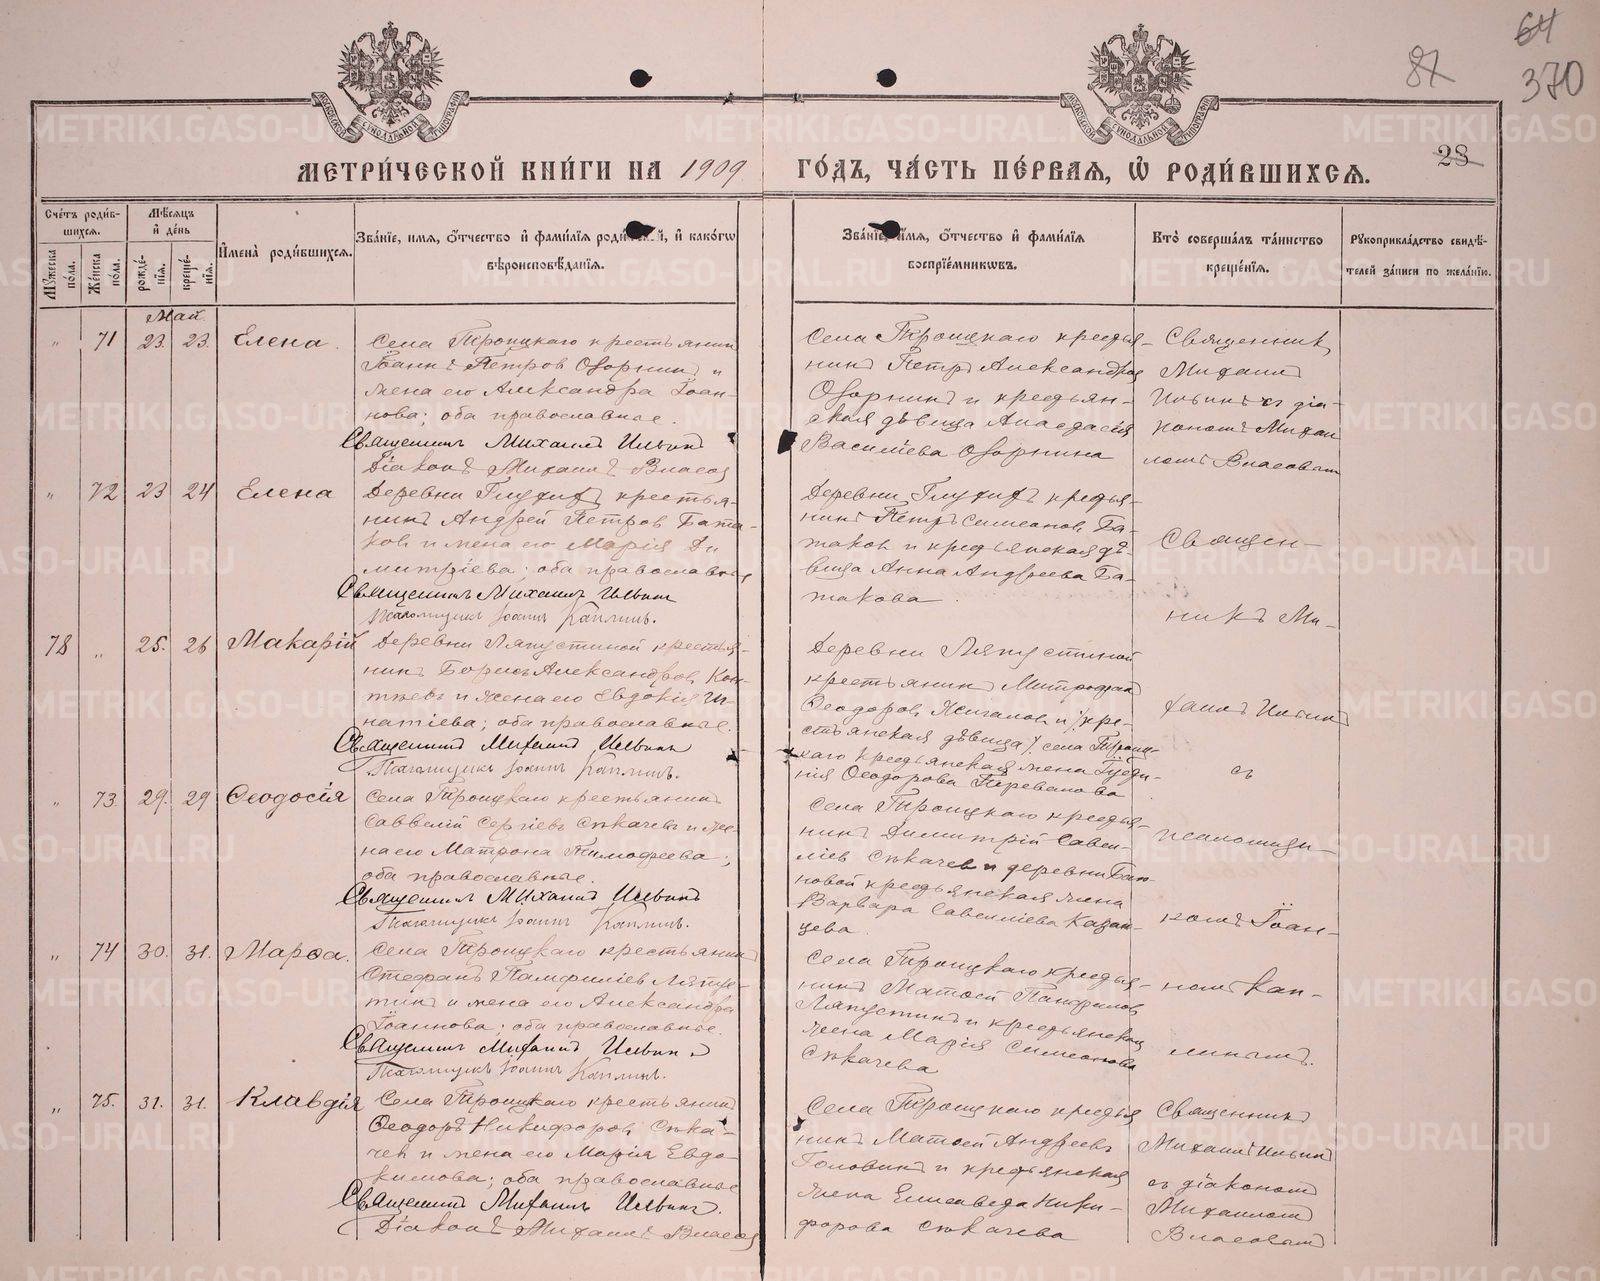 64
87
370
28
МОСКОВСКОЙ СѴНОДАЛЬНОЙ ТИПОГРАФІИ
МОСКОВСКОЙ СѴНОДАЛЬНОЙ ТИПОГРАФІИ
МЕТРИ́ЧЕСКОЙ КНИ́ГИ НА 1909 ГО́ДЪ, ЧА́СТЬ ПЕ́РВАЯ, Ѡ҆ РОДИ́ВШИХСЯ.
Сче́тъ роди́в-
шихся.
Мѣ́сяцъ
и҆ де́нь
Мꙋ́жеска
по́ла.
Же́нска
по́ла.
рожде́-
нїя.
креще́-
нїя.
И҆мена̀ роди́вшихся.
Зва́нїе, и҆мя, ѻ҆́тчество и҆ фами́лїя роди́телей, и҆ како́гѡ
вѣроисповѣ́данїя.
Зва́нїе, и҆мя, ѻ҆́тчество и҆ фами́лїя
воспрїе́мникѡвъ.
Кто̀ соверша́лъ та́инство
креще́нїя.
Рꙋкоприкла́дство свидѣ́-
телей за́писи по жела́нїю.
Май
" 71 23. 23. Елена.
Села Троицкаго крестьянинъ
Іоаннъ Петров Озорнинъ и
жена его Александра Іоан-
нова; оба православные.
Священникъ Михаилъ Ильинъ
Діаконъ Михаилъ Власов
Села Троицкаго крестья-
нинъ Петръ Александров
Озорнинъ и крестьян-
ская дѣвица Анастасія
Василіева Озорнина
Священникъ
Михаилъ
Ильинъ съ діа-
кономъ Михаи
ломъ Власовымъ
" 72 23 24 Елена
Деревни Глухихъ крестья-
нинъ Андрей Петров Бата-
ков и жена его Марія Ди
митріева; оба православные
Священникъ Михаилъ Ильинъ
Псаломщикъ Іоаннъ Каплинъ.
Деревни Глухихъ крестья-
нинъ Петръ Симеонов Ба-
таков и крестьянская дѣ-
вица Анна Андреева Ба-
такова.
Священ-
никъ Ми-
78 " 25. 26 Макарій
Деревни Ляпустиной крестья-
нинъ Борисъ Александров
и жена его Евдокія Иг-
натіева; оба православные.
Священникъ Михаилъ Ильинъ
Псаломщикъ Іоаннъ Каплинъ.
Деревни Ляпустиной
крестьянинъ Митрофан
Ѳеодоров Жигалов и /кре-
стьянская дѣвица/ села Троиц-
каго крестьянская жена
Ѳеодорова
хаилъ Ильинъ
съ
" 73. 29. 29 Ѳеодосія
Села Троицкаго крестьянинъ
Савелій Сергіевъ Сѣкачевъ и же-
на его Матрона Тимоѳеева;
оба православные.
Священникъ Михаилъ Ильинъ
Псаломщикъ Іоаннъ Каплинъ.
Села Троицкаго крестья-
нинъ Димитрій Савел-
ліев Сѣкачевъ и деревни
новой крестьянская жена
Варвара Савелліева Казан-
цева.
псаломщи-
комъ Іоан-
" 74 30. 31. Марѳа.
Села Троицкаго крестьянинъ
Стефанъ Памфиліев Ляпус-
тинъ и жена его Александра
Іоаннова; оба православные.
Священникъ Михаилъ Ильинъ
Псаломщикъ Іоаннъ Каплинъ.
Села Троицкаго крестья-
нинъ Матѳей Панфилов
Ляпустинъ и крестьянская
жена Марія Симеонова
Сѣкачева
номъ Кап-
линымъ.
" 75. 31. 31. Клавдія
Села Троицкаго крестьянинъ
Ѳеодоръ Никифоров Сѣка-
чев и жена его Марія Евдо-
кимова; оба православные
Священникъ Михаилъ Ильинъ.
Діаконъ Михаилъ Власов
Села Троицкаго крестья
нинъ Матѳей Андреевъ
Головинъ и крестьянская
жена Елисавета Ники-
форова Сѣкачева
Священникъ
Михаилъ Ильинъ
съ діакономъ
Михаиломъ
Власовымъ
METRIKI.GASO-URAL.RU